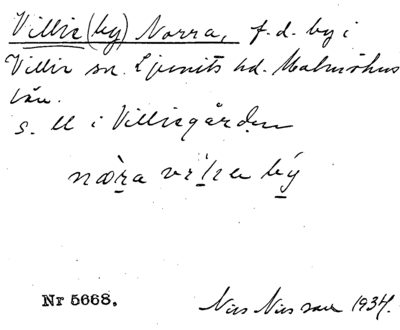 Villie (by) Norra, f.d. by i
Villie sn. Ljunits hd. Malmöhus
län.
s. ll i Villiegården
by
Nr 5668. Nils Nilsson 1934.